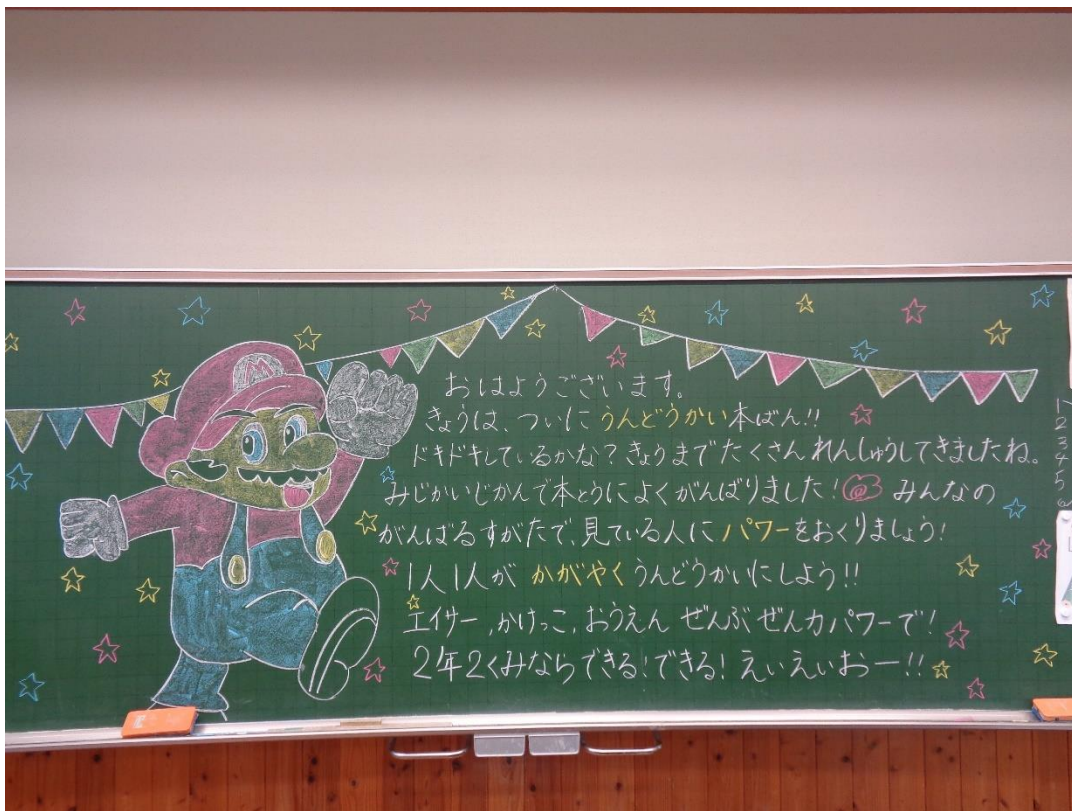 おはようございます。
きょうは、ついに うんどうかい本ばん!!
ドキドキしているかな?きょうまでたくさんれんしゅうしてきましたね。
みじかいじかんで本とうによくがんばりました! みんなの
がんばるすがたで、見ている人にパワーをおくりましょう!
1人1人が かがやくうんどうかいにしよう!!
エイサー,かけっこ,おうえん ぜんぶ ぜん力パワーで!
2年2くみならできる!できる! えいえいおー!!
M
1
2
3
4
5
6